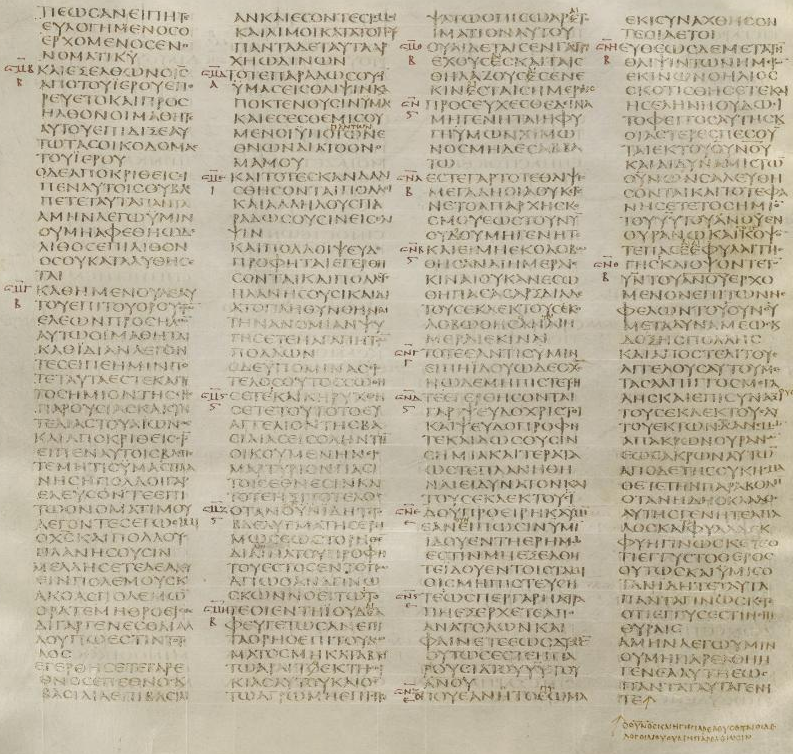 ΠΕΩϹΑΝΕΙΠΗΤΕ
ΕΥΛΟΓΗΜΕΝΟϹΟ
ΕΡΧΟΜΕΝΟϹΕΝΟ
ΝΟΜΑΤΙΚΥ
ΚΑΙΕΞΕΛΘΩΝΟΙϹ
ΑΠΟΤΟΥΙΕΡΟΥΕΠΟ
ΡΕΥΕΤΟΚΑΙΠΡΟϹ
ΗΛΘΟΝΟΙΜΑΘΗΤΑΙ
ΑΥΤΟΥΕΠΙΔΙΞΑΙΑΥ
ΤΩΤΑϹΟΙΚΟΔΟΜΑϹ
ΤΟΥΙΕΡΟΥ
ΟΔΕΑΠΟΚΡΙΘΕΙϹΕΙ
ΠΕΝΑΥΤΟΙϹΟΥΒΛΕ
ΠΕΤΕΤΑΥΤΑΠΑΝΤΑ
ΑΜΗΝΛΕΓΩΥΜΙΝ
ΟΥΜΗΑΦΕΘΗΩΔΕ
ΛΙΘΟϹΕΠΙΛΙΘΟΝ
ΟϹΟΥΚΑΤΑΛΥΘΗϹΕ
ΤΑΙ
ΚΑΘΗΜΕΝΟΥΔΕΑΥ
ΤΟΥΕΠΙΤΟΥΟΡΟΥϹΤΩ
ΕΛΕΩΝΠΡΟϹΗΛΘΟ
ΑΥΤΩΟΙΜΑΘΗΤΑΙ
ΚΑΘΙΔΙΑΝΛΕΓΟΝ
ΤΕϹΕΙΠΕΗΜΙΝΠΟ
ΤΕΤΑΥΤΑΕϹΤΕΚΑΙΤΙ
ΤΟϹΗΜΙΟΝΤΗϹϹΗϹ
ΠΑΡΟΥϹΙΑϹΚΑΙϹΥΝ
ΤΕΛΙΑϹΤΟΥΑΙΩΝΟϹ
ΚΑΙΑΠΟΚΡΙΘΕΙϹΟΙϹ
ΕΙΠΕΝΑΥΤΟΙϹΒΛΕΠΕ
ΤΕΜΗΤΙϹΥΜΑϹΠΛΑ
ΝΗϹΗΠΟΛΛΟΙΓΑΡ
ΕΛΕΥϹΟΝΤΕΕΠΙ
ΤΩΟΝΟΜΑΤΙΜΟΥ
ΛΕΓΟΝΤΕϹΕΓΩΕΙΜΙ
ΟΧϹΚΑΙΠΟΛΛΟΥϹ
ΠΛΑΝΗϹΟΥϹΙΝ
ΜΕΛΛΗϹΕΤΕΔΕΑΚΟΥ
ΕΙΝΠΟΛΕΜΟΥϹΚΑΙ
ΑΚΟΑϹΠΟΛΕΜΩΝ
ΟΡΑΤΕΜΗΘΡΟΕΙϹΘΕ
ΔΙΓΑΡΓΕΝΕϹΘΑΙΑΛ
ΛΟΥΠΩΕϹΤΙΝΤΟΤΕ
ΛΟϹ
ΕΓΕΡΘΗϹΕΤΕΓΑΡΕ
ΘΝΟϹΕΠΕΘΝΟϹΚΑΙ
ΒΑϹΙΛΙΑΕΠΙΒΑϹΙΛΙ
ΑΝΚΑΙΕϹΟΝΤΕϹΙϹΜΟΙ
ΚΑΙΛΙΜΟΙΚΑΤΑΤΟΠΟΥϹ
ΠΑΝΤΑΔΕΤΑΥΤΑΑΡ
ΧΗΩΔΙΝΩΝ
ΤΟΤΕΠΑΡΑΔΩϹΟΥϹΙ
ΥΜΑϹΕΙϹΘΛΙΨΙΝΚΑΙ
ΑΠΟΚΤΕΝΟΥϹΙΝΥΜΑϹ
ΚΑΙΕϹΕϹΘΕΜΙϹΟΥ
ΜΕΝΟΙΥΠΟΠΑΝΤΩΝ
ΕΘΝΩΝΔΙΑΤΟΟΝΟ
ΜΑΜΟΥ
ΚΑΙΤΟΤΕϹΚΑΝΔΑΛΙ
ϹΘΗϹΟΝΤΑΙΠΟΛΛΟΙ
ΚΑΙΑΛΛΗΛΟΥϹΠΑ
ΡΑΔΩϹΟΥϹΙΝΕΙϹΘΛΙ
ΨΙΝ
ΚΑΙΠΟΛΛΟΙΨΕΥΔΟ
ΠΡΟΦΗΤΑΙΕΓΕΡΘΗ
ϹΟΝΤΑΙΚΑΙΠΟΛΛΟΥϹ
ΠΛΑΝΗϹΟΥϹΙΚΑΙΔΙΑ
ΤΟΠΛΗΘΥΝΘΗΝΑΙ
ΤΗΝΑΝΟΜΙΑΝΨΥ
ΓΗϹΕΤΕΗΑΓΑΠΗΤΩ
ΠΟΛΛΩΝ
ΟΔΕΥΠΟΜΙΝΑϹΕΙϹ
ΤΕΛΟϹΟΥΤΟϹϹΩΘΗ
ϹΕΤΕΚΑΙΚΗΡΥΧΘΗ
ϹΕΤΕΤΟΥΤΟΤΟΕΥ
ΑΓΓΕΛΙΟΝΤΗϹΒΑ
ϹΙΛΙΑϹΕΙϹΟΛΗΝΤΗ
ΟΙΚΟΥΜΕΝΗΝΕΙϹ
ΜΑΡΤΥΡΙΟΝΠΑϹΙ
ΤΟΙϹΕΘΝΕϹΙΝΚΑΙ
ΤΟΤΕΗΞΙΤΟΤΕΛΟϹ
ΟΤΑΝΟΥΝΙΔΗΤΕΤΟ
ΒΔΕΛΥΓΜΑΤΗϹΕΡΗ
ΜΩϹΕΩϹΤΟΡΗΘΕΝ
ΔΙΑΔΑΝΙΗΛΤΟΥΠΡΟΦΗ
ΤΟΥΕϹΤΟϹΕΝΤΟΠΩ
ΑΓΙΩΟΑΝΑΓΙΝΩ
ϹΚΩΝΝΟΕΙΤΩΤΟ
ΤΕΟΙΕΝΤΗΙΟΥΔΑΙΑ
ΦΕΥΓΕΤΩϹΑΝΕΠΙ
ΤΑΟΡΗΟΕΠΙΤΟΥΔΩ
ΜΑΤΟϹΜΗΚΑΤΑΒΑΤΩ
ΑΡΑΙΤΑΕΚΤΗϹΟΙ
ΚΙΑϹΑΥΤΟΥΚΑΙΟΕΝ
ΤΩΑΓΡΩΜΗΕΠΙϹΤΡΕ
ΨΑΤΩΟΠΙϹΩΑΡΑΙΤΟ
ΙΜΑΤΙΟΝΑΥΤΟΥ
ΟΥΑΙΔΕΤΑΙϹΕΝΓΑϹΤΡΙ
ΕΧΟΥϹΕϹΚΑΙΤΑΙϹ
ΘΗΛΑΖΟΥϹΕϹΕΝΕ
ΚΙΝΕϹΤΑΙϹΗΜΕΡΑΙϹ
ΠΡΟϹΕΥΧΕϹΘΕΔΕΙΝΑ
ΜΗΓΕΝΗΤΑΙΗΦΥ
ΓΗΥΜΩΝΧΙΜΩ
ΝΟϹΜΗΔΕϹΑΒΒΑ
ΤΩ
ΕϹΤΕΓΑΡΤΟΤΕΘΛΙΨΙϹ
ΜΕΓΑΛΗΟΙΑΟΥΚΕΓΕ
ΝΕΤΟΑΠΑΡΧΗϹΚΟ
ϹΜΟΥΕΩϹΤΟΥΝΥ
ΟΥΔΟΥΜΗΓΕΝΗΤΕ
ΚΑΙΕΙΜΗΕΚΟΛΟΒΩ
ΘΗϹΑΝΑΙΗΜΕΡΑΙΕ
ΚΙΝΑΙΟΥΚΑΝΕϹΩ
ΘΗΠΑϹΑϹΑΡΞΔΙΑΔΕ
ΤΟΥϹΕΚΛΕΚΤΟΥϹΕΚΟ
ΛΟΒΩΘΗϹΑΝΑΙΗ
ΜΕΡΑΙΕΚΙΝΑΙ
ΤΟΤΕΕΑΝΤΙϹΥΜΙΝ
ΕΙΠΗΙΔΟΥΩΔΕΟΧϹ
ΗΩΔΕΜΗΠΙϹΤΕΥΗΤΕ
ΕΓΕΡΘΗϹΟΝΤΑΙ
ΓΑΡΨΕΥΔΟΧΡΙϹΤΟΙ
ΚΑΙΨΕΥΔΟΠΡΟΦΗ
ΤΕΚΑΙΔΩϹΟΥϹΙΝ
ϹΗΜΙΑΚΑΙΤΕΡΑΤΑ
ΩϹΤΕΠΛΑΝΗΘΗ
ΝΑΙΕΙΔΥΝΑΤΟΝΚΑΙ
ΤΟΥϹΕΚΛΕΚΤΟΥϹ
ΙΔΟΥΠΡΟΕΙΡΗΚΑΥΜΙ
ΕΑΝΕΙΠΩϹΙΝΥΜΙ
ΙΔΟΥΕΝΤΗΕΡΗΜΩ
ΕϹΤΙΝΜΗΕΞΕΛΘΗ
ΤΕΙΔΟΥΕΝΤΟΙϹΤΑΜΙ
ΟΙϹΜΗΠΙϹΤΕΥϹΗ
ΤΕΩϹΠΕΡΓΑΡΗΑϹΤΡΑ
ΠΗΕΞΕΡΧΕΤΕΑΠΟ
ΑΝΑΤΟΛΩΝΚΑΙ
ΦΑΙΝΕΤΕΕΩϹΔΥϹΜΩ
ΟΥΤΩϹΕϹΤΕΗΠΑ
ΡΟΥϹΙΑΤΟΥΥΥΤΟΥ
ΑΝΟΥ
ΟΠΟΥΕΑΝΗΤΟϹΩΜΑ
ΕΚΙϹΥΝΑΧΘΗϹΟΝ
ΤΕΟΙΑΕΤΟΙ
ΕΥΘΕΩϹΔΕΜΕΤΑΤΗ
ΘΛΙΨΙΝΤΩΝΗΜΕΡΩ
ΕΚΙΝΩΝΟΗΛΙΟϹ
ϹΚΟΤΙϹΘΗϹΕΤΕΚΑΙ
ΗϹΕΛΗΝΗΟΥΔΩϹΙ
ΤΟΦΕΓΓΟϹΑΥΤΗϹΚΑΙ
ΟΙΑϹΤΕΡΕϹΠΕϹΟΥ
ΤΑΙΕΚΤΟΥΟΥΝΟΥ
ΚΑΙΑΙΔΥΝΑΜΙϹΤΩ
ΟΥΝΩΝϹΑΛΕΥΘΗ
ϹΟΝΤΑΙΚΑΙΤΟΤΕΦΑ
ΝΗϹΕΤΕΤΟϹΗΜΙΟ
ΤΟΥΥΥΤΟΥΑΝΟΥΕΝ
ΟΥΡΑΝΩΚΑΙΚΟΨΟ
ΤΕΠΑϹΕΑΙΦΥΛΑΙΤΗϹ
ΓΗϹΚΑΙΟΨΟΝΤΕΤΟ
ΥΝΤΟΥΑΝΟΥΕΡΧΟ
ΜΕΝΟΝΕΠΙΤΩΝΝΕ
ΦΕΛΩΝΤΟΥΟΥΝΟΥ
ΜΕΤΑΔΥΝΑΜΕΩϹΚΑΙ
ΔΟΞΗϹΠΟΛΛΗϹ
ΚΑΙΑΠΟϹΤΕΛΙΤΟΥϹ
ΑΓΓΕΛΟΥϹΑΥΤΟΥΜΕ
ΤΑϹΑΛΠΙΓΓΟϹΜΕΓΑ
ΛΗϹΚΑΙΕΠΙϹΥΝΑΞΙ
ΤΟΥϹΕΚΛΕΚΤΟΥϹΑΥ
ΤΟΥΕΚΤΩΝΔΑΝΕΜΩ
ΑΠΑΚΡΩΝΟΥΡΑΝΩ
ΕΩϹΑΚΡΩΝΑΥΤΩ
ΑΠΟΔΕΤΗϹϹΥΚΗϹΜΑ
ΘΕΤΕΤΗΝΠΑΡΑΒΟΛΗ
ΟΤΑΝΗΔΗΟΚΛΑΔΟϹ
ΑΥΤΗϹΓΕΝΗΤΕΑΠΑ
ΛΟϹΚΑΙΤΑΦΥΛΛΑΕΚ
ΦΥΗΓΙΝΩϹΚΕΤΕΟ
ΤΙΕΓΓΥϹΤΟΘΕΡΟϹ
ΟΥΤΩϹΚΑΙΥΜΙϹΟ
ΤΑΝΙΔΗΤΕΤΑΥΤΑ
ΠΑΝΤΑΓΙΝΩϹΚΕΤΕ
ΟΤΙΕΓΓΥϹΕϹΤΙΝΕΠΙ
ΘΥΡΑΙϹ
ΑΜΗΝΛΕΓΩΥΜΙΝ
ΟΥΜΗΠΑΡΕΛΘΗΗ
ΓΕΝΕΑΑΥΤΗΕΩϹΑΝ
ΠΑΝΤΑΤΑΥΤΑΓΕΝΗ
ΤΕ
ΟΟΥΝΟϹΚΑΙΗΓΗΠΑΡΕΛΕΥϹΟΝΤΑΙΟΙΔΕ
ΛΟΓΟΙΜΟΥΟΥΜΗΠΑΡΕΛΘΩϹΙΝ